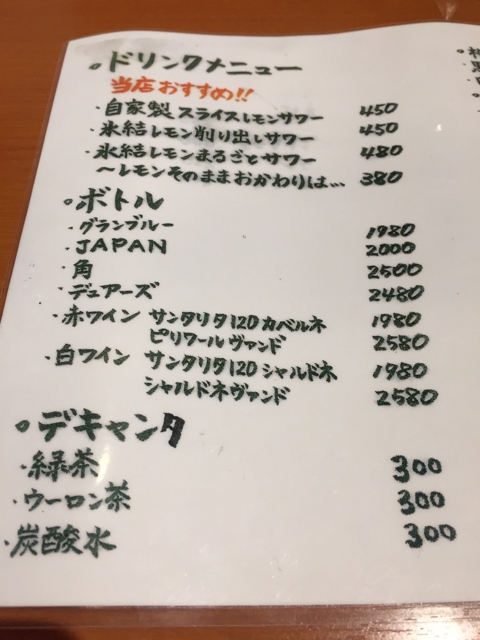 ドリンクメニュー
当店おすすめ!!
・自家製スライスレモンサワー 450
・氷結レモン削り出しサワー 450
・氷結レモンまるごとサワー 480
～レモンそのままおかわりは… 380
ボトル
・グランブルー 1980
・JAPAN 2000
・角 2500
・デュアーズ 2480
・赤ワイン サンタリタ120カベルネ 1980
ピリワールヴァンド 2580
・白ワイン サンタリタ120シャルドネ 1980
シャルドネヴァンド 2580
デキャンタ
・緑茶 300
・ウーロン茶 300
・炭酸水 300